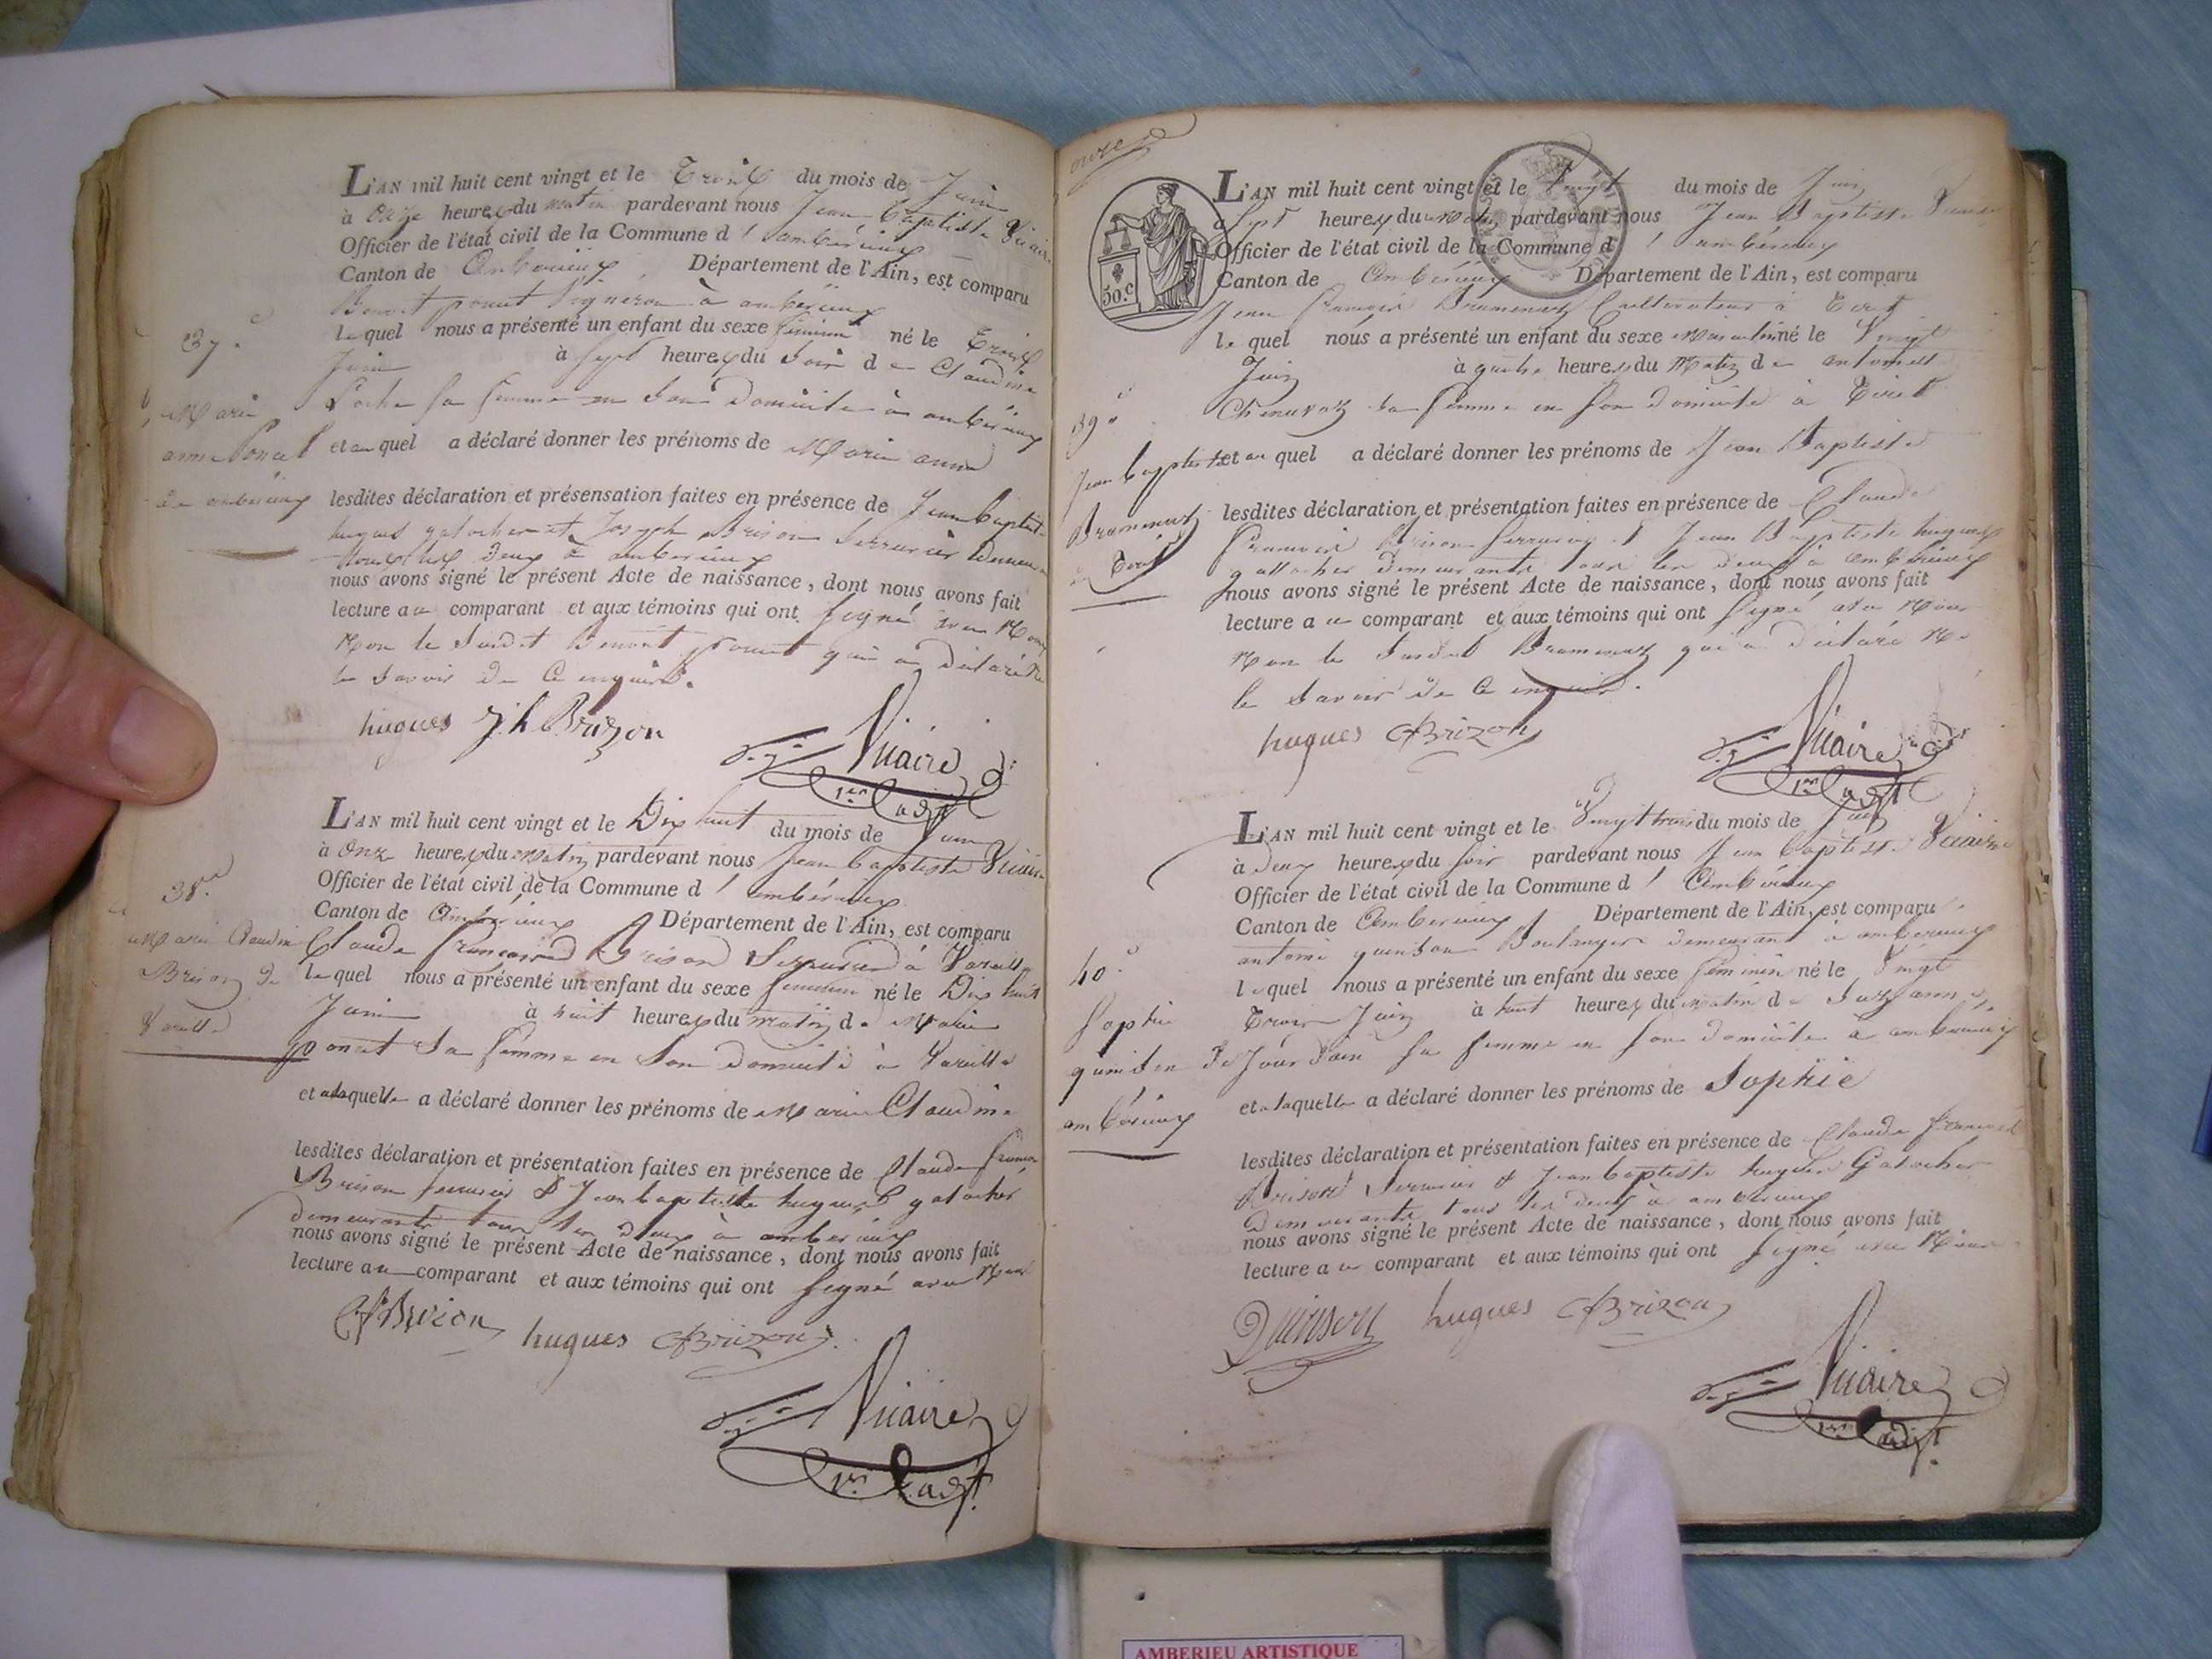 37.e
Marie
anne Poncet
de ambérieux
L'AN mil huit cent vingt et le Treize du mois de Juin
à Onze heures du matin pardevant nous Jean Baptiste Vicaire
Officier de l'état civil de la Commune d' ambérieux
Canton de Ambérieux Département de l'Ain, est comparu
Benoit poncet Vigneron à ambérieux
lequel nous a présenté un enfant du sexe féminin né le
Juin à sept heures du Soir de Claudine
sa femme en Son Domicile à ambérieux
et auquel a déclaré donner les prénoms de Marie anne
lesdites déclaration et présensation faites en présence de Jean Baptiste
hugues galocher et Joseph Brison Serrurier
tous les deux à ambérieux
nous avons signé le présent Acte de naissance, dont nous avons fait
lecture au comparant et aux témoins qui ont signé avec Nous
Non le Susdit Benoit poncet qui a Déclaré Ne
le Savoir De Ce enquis.
hugues Jh Brizon
Vicaire
1er adjt
38.e
Marie Claudine
Brison de
Vareille
L'AN mil huit cent vingt et le Dix huit du mois de Juin
à Onze heures du matin pardevant nous Jean Baptiste Vicaire
Officier de l'état civil de la Commune d' ambérieux
Canton de Ambérieux Département de l'Ain, est comparu
Claude françois Brison Serrurier à Vareille
lequel nous a présenté un enfant du sexe feminin né le Dix huit
Juin à huit heures du matin de Marie
poncet Sa femme en Son Domicile à Vareille
et a laquelle a déclaré donner les prénoms de Marie Claudine
lesdites déclaration et présentation faites en présence de Claude françois
Brison serrurier & Jean baptiste hugues galocher
demeurants tous les deux à ambérieux
nous avons signé le présent Acte de naissance, dont nous avons fait
lecture au comparant et aux témoins qui ont signé avec Nous
hugues CfBrizon
Vicaire
1er adjt.
onze
50.c
39.e
Jean baptiste
Bramerel
L'AN mil huit cent vingt et le Vingt du mois de Juin
à Sept heures du Matin pardevant nous Jean Baptiste Vicaire
Officier de l'état civil de la Commune d' ambérieux
Canton de Ambérieux Département de l'Ain, est comparu
Jean François Cultivateur à Tiret
lequel nous a présenté un enfant du sexe Masculin né le Vingt
Juin à quatre heures du Matin de antoinette
sa femme en son domicile à Tiret
et au quel a déclaré donner les prénoms de Jean Baptiste
lesdites déclaration et présentation faites en présence de Claude
François Brison serrurier & Jean Baptiste hugues
gallocher demeurants tous les deux à ambérieux
nous avons signé le présent Acte de naissance, dont nous avons fait
lecture au comparant et aux témoins qui ont signé avec Nous
Non le Susdit qui a déclaré Ne
le Savoir de Ce enquis.
hugues CfBrizon
Vicaire
1er adjt
40.e
Sophie
quinson de
ambérieux
L'AN mil huit cent vingt et le Vingt trois du mois de Juin
à deux heures du soir pardevant nous Jean baptiste Vicaire
Officier de l'état civil de la Commune d' Ambérieux
Canton de Amberieux Département de l'Ain, est comparu
antoine quinson Boulanger demeurant à ambérieux
lequel nous a présenté un enfant du sexe féminin né le Vingt
Trois Juin à huit heures du matin de Suzanne
Jourdain sa femme en son domicile à ambérieux
et a laquelle a déclaré donner les prénoms de Sophie
lesdites déclaration et présentation faites en présence de Claude François
Brison Serrurier & Jean baptiste hugues Galocher
Demeurants tous les deux à ambérieux
nous avons signé le présent Acte de naissance, dont nous avons fait
lecture au comparant et aux témoins qui ont signé avec Nous
Quinson hugues CfBrizon
Vicaire
1er adjt.
AMBERIEU ARTISTIQUE